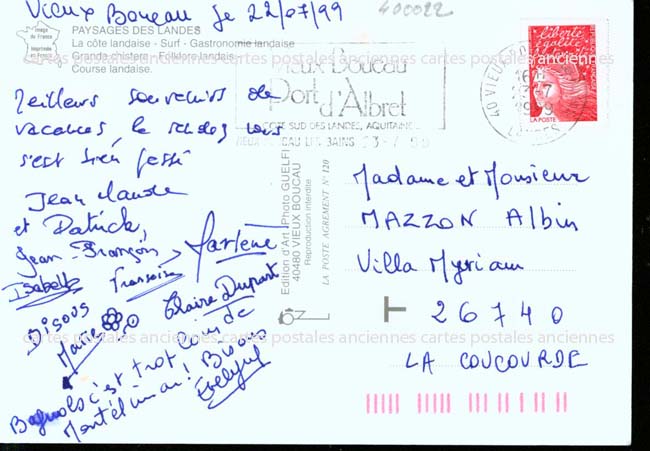 Vieux Boucau le 22/07/99
400022
Image de France
Imprimé en France
PAYSAGES DES LANDES
La côte landaise - Surf - Gastronomie landaise
Grande chistera - Folklore landais
Course landaise.
cartes postales anciennes cartes postales anciennes cartes postales anciennes
Meilleurs souvenirs de
vacances, le rendez vous
s'est bien passé
Jean Claude
et Patrick,
Jean-François
Marlène
Isabelle
Francoise
Bisous
Marie
Claire Dupart
Bagnols c'est trop loin de
Montélimar! Bisous
Evelyne
Vieux Boucau
Port d'Albret
COTE SUD DES LANDES, AQUITAINE
VIEUX BOUCAU LES BAINS 23-7 99
Edition d'Art - Photo GUELFI
40480 VIEUX BOUCAU
Reproduction interdite
LA POSTE AGREMENT N° 120
liberté
égalité
LA POSTE
40 VIEUX BOU
16H
23-7
1999
LANDES
Madame et Monsieur
MAZZON Albin
Villa Myriam
26740
LA COUCOURDE
cartes postales anciennes cartes postales anciennes cartes postales anciennes